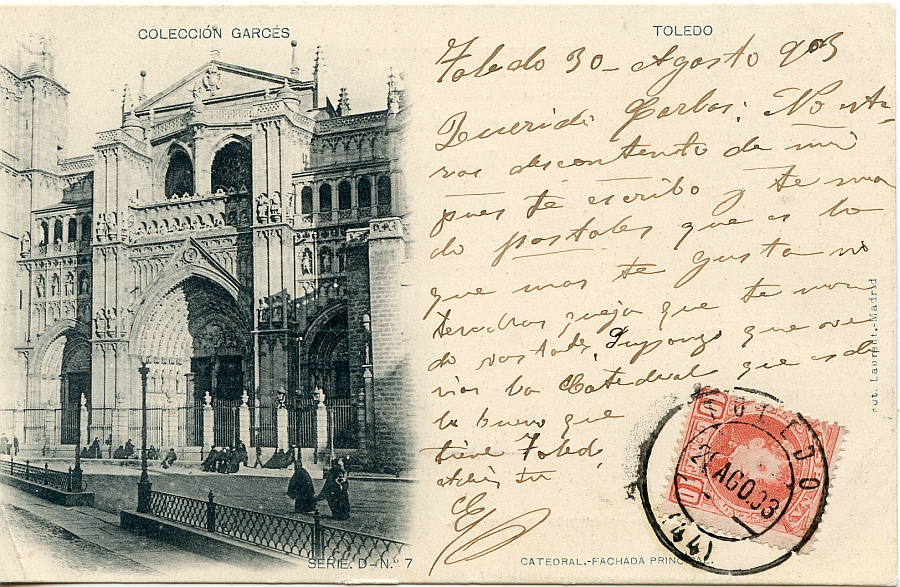 COLECCIÓN GARCÉS
TOLEDO
Toledo 30 - Agosto 903
Querido Carlos: No esta-
ras descontento de mi
pues te escribo y te man
do postales que es lo
que mas te gusta no
tendras queja que te man
do postales, Supongo que ve
rias la Catedral que es de
lo bueno que
tiene Toledo,
adios tu
Fot. Laurent.-Madrid
TOLEDO
AGO.03
(44)
10
10
SERIE. D-N.º 7
CATEDRAL.-FACHADA PRINCIPAL.